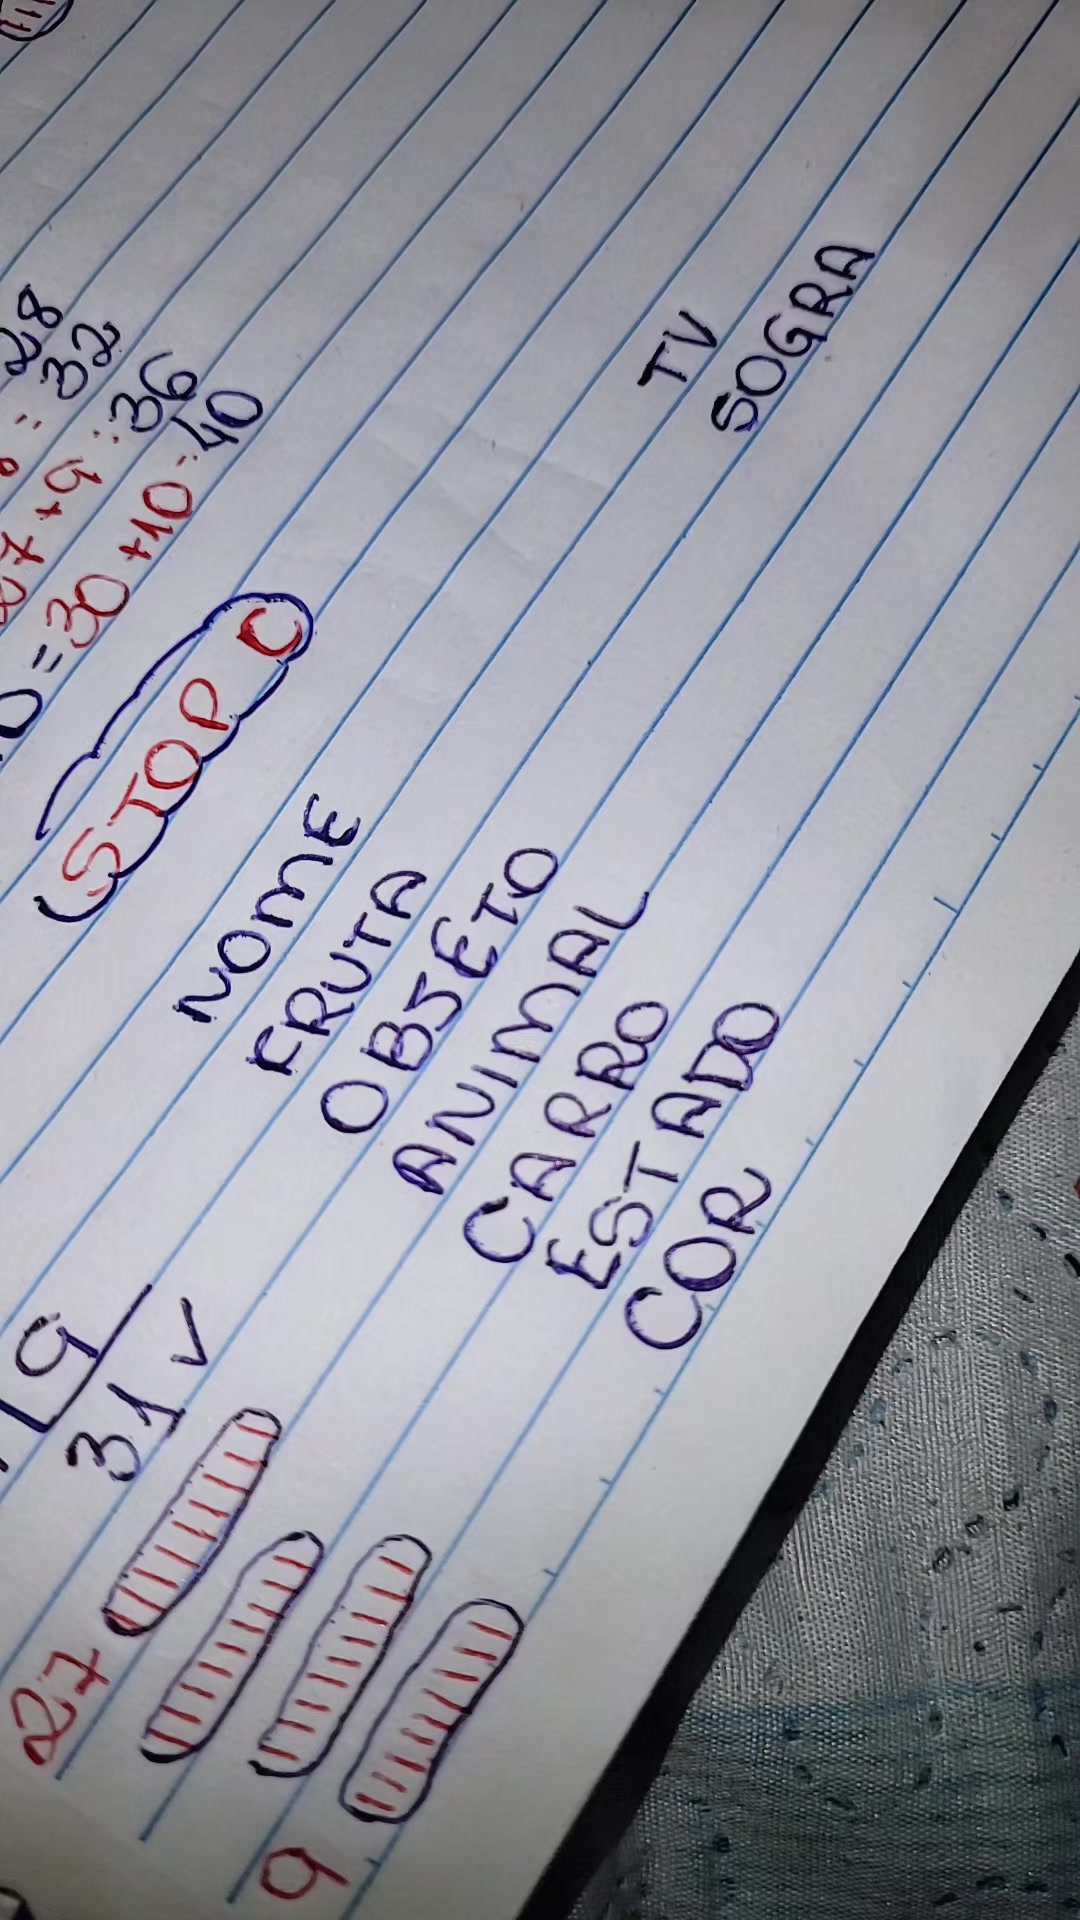 28
: 32
27 + 9 : 36
0 = 30 + 10 : 40
STOP C
NOME
FRUTA
OBJETO
ANIMAL
CARRO
ESTADO
COR
TV
SOGRA
9
31 V
27
9